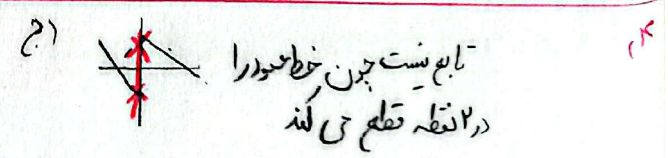 ۴)
ج)
تابع نیست چون خط عمود را
در ۲ نقطه قطع می کند